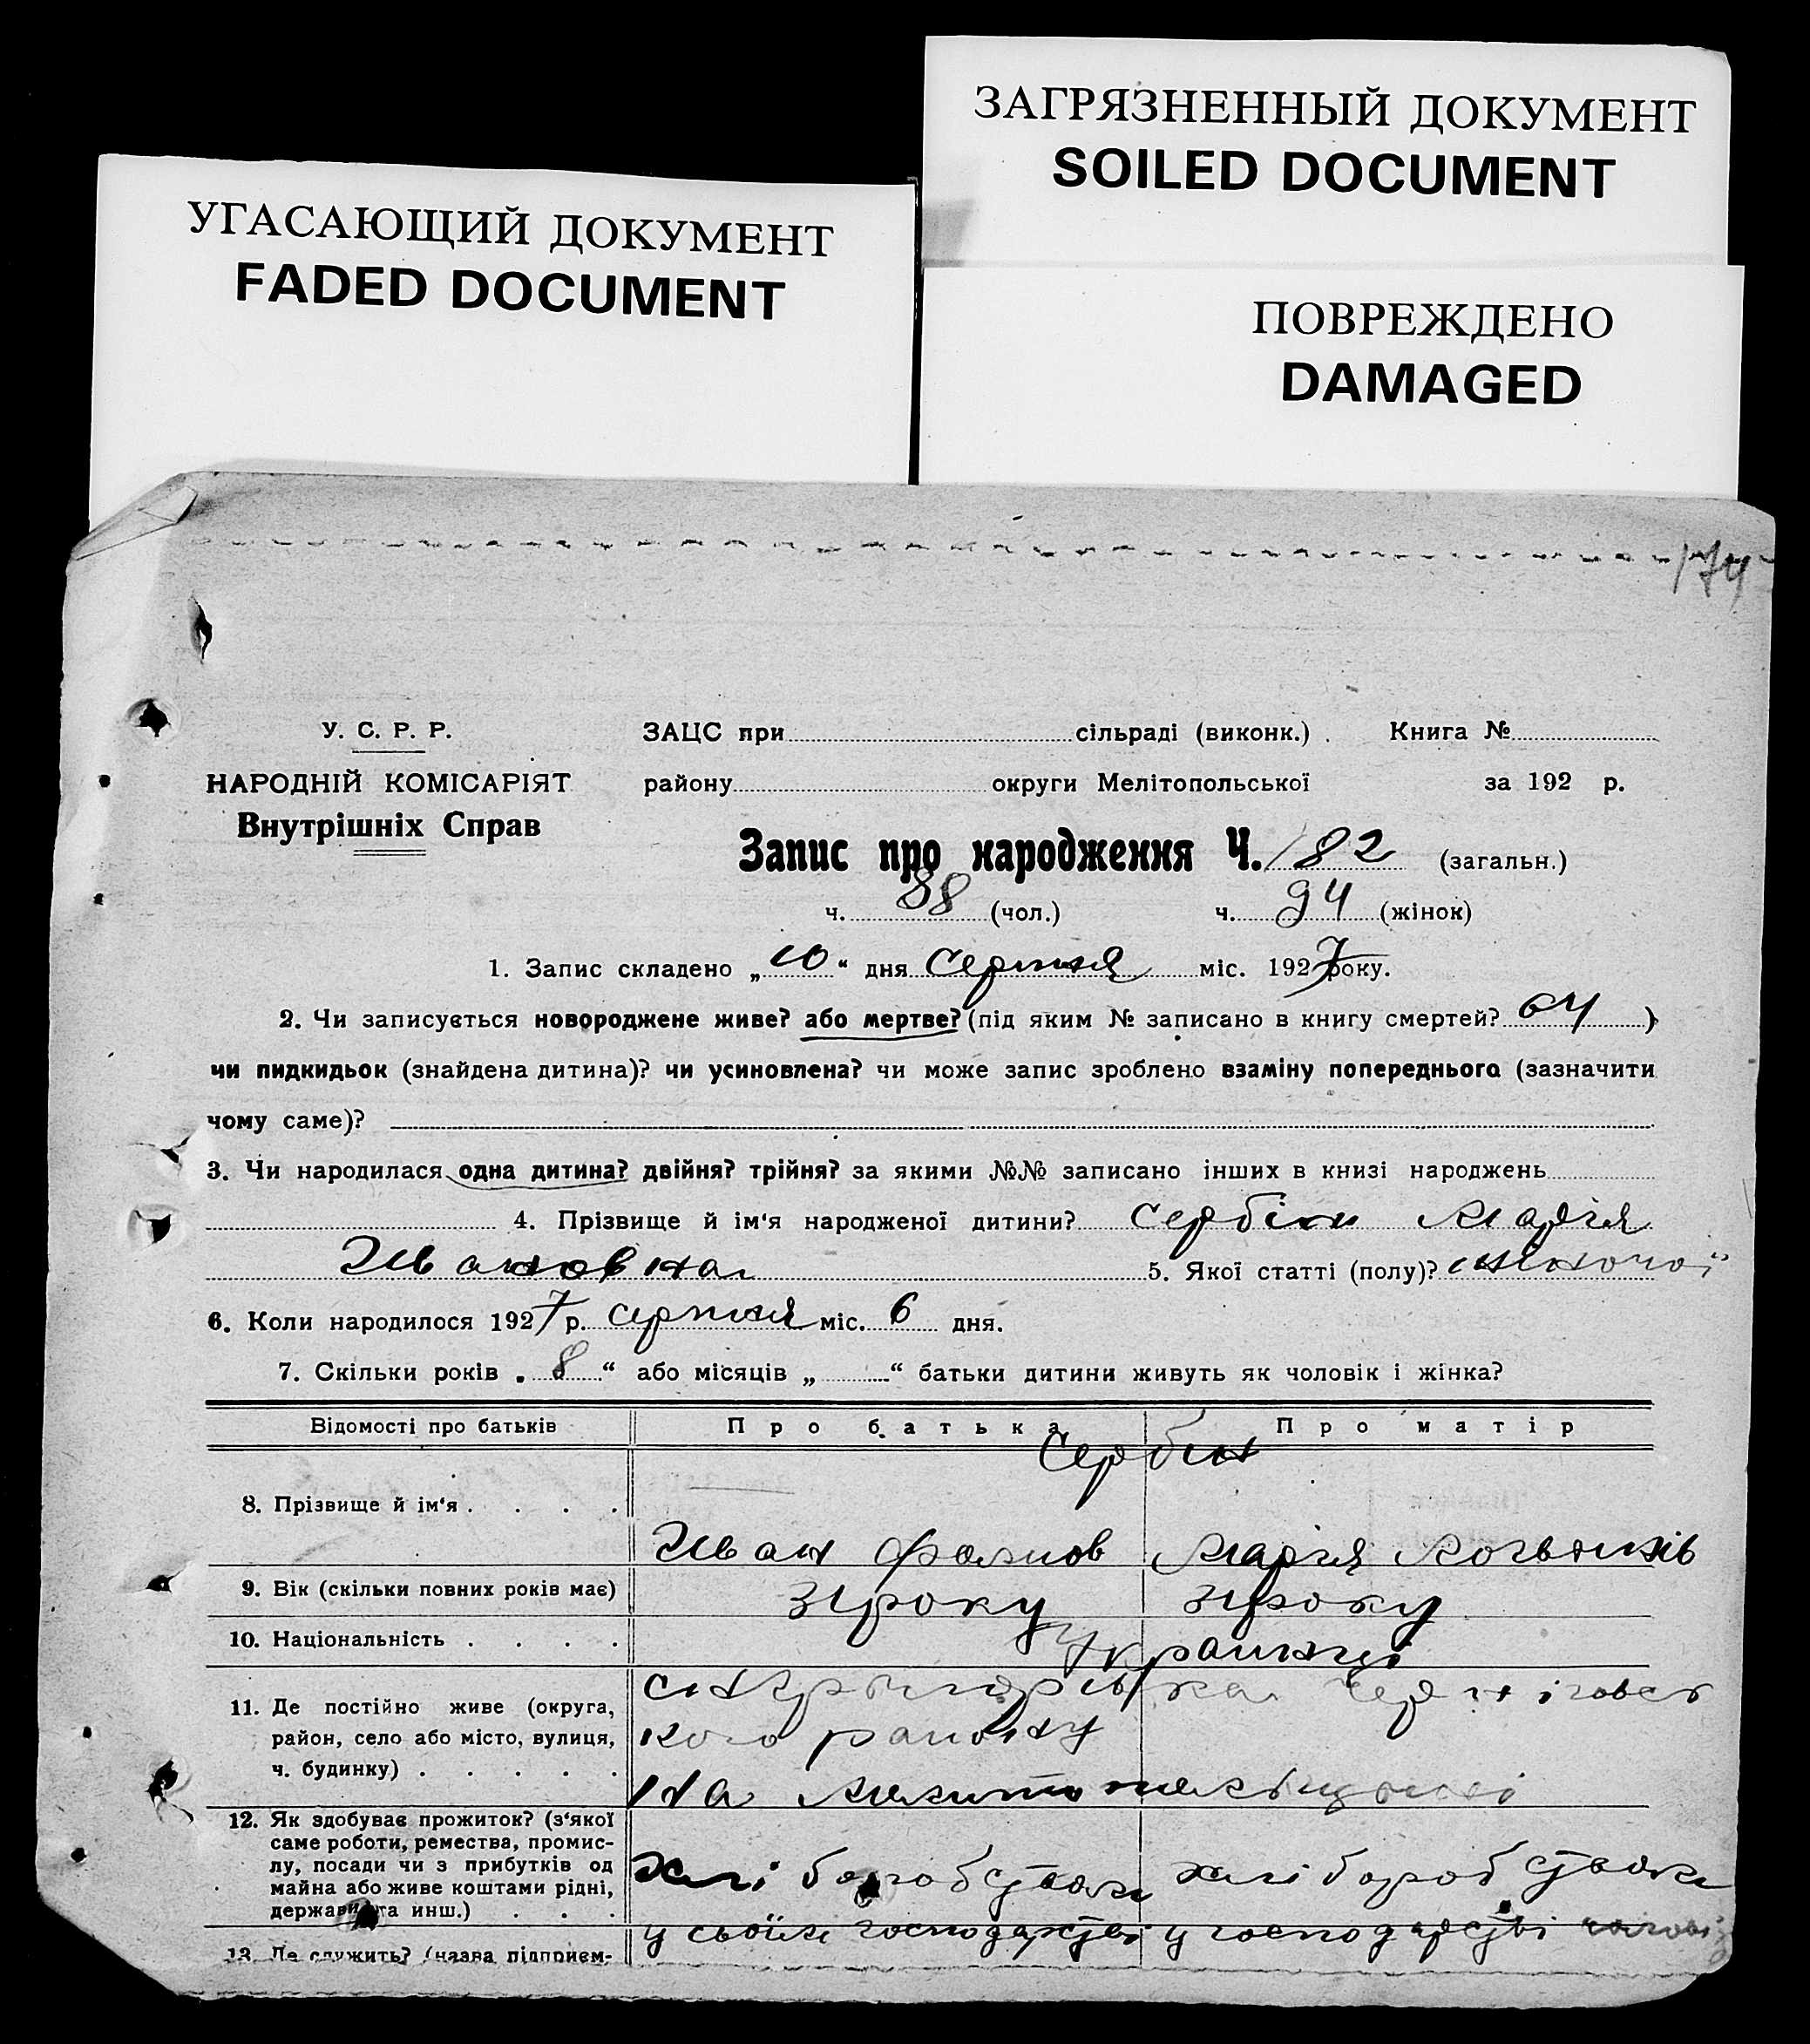 ЗАГРЯЗНЕННЫЙ ДОКУМЕНТ
SOILED DOCUMENT
УГАСАЮЩИЙ ДОКУМЕНТ
FADED DOCUMENT
ПОВРЕЖДЕНО
DAMAGED
174
У. С. Р. Р.
НАРОДНІЙ КОМІСАРІЯТ
Внутрішніх Справ
ЗАЦС при сільраді (виконк.) Книга №
району округи Мелітопольської за 192 р.
Запис про народження Ч. 182 (загальн.)
ч. 88 (чол.) ч. 94 (жінок)
1. Запис складено „10“ дня Серпня міс. 1927 року.
2. Чи записується новороджене живе? або мертве? (під яким № записано в книгу смертей? 64 )
чи пидкидьок (знайдена дитина)? чи усиновлена? чи може запис зроблено взаміну попереднього (зазначити
чому саме)?
3. Чи народилася одна дитина? двійня? трійня? за якими №№ записано інших в книзі народжень
4. Прізвище й ім‘я народженої дитини? Сербін Марія
Ивановна 5. Якої статті (полу)? жіночої
6. Коли народилося 1927 р. серпня міс. 6 дня.
7. Скільки років „ 8 “ або місяців „ “ батьки дитини живуть як чоловік і жінка?
Відомості про батьків Про батька Про матір
Сербин
8. Прізвище й ім‘я
Иван Марія
9. Вік (скільки повних років має) 31 року 31 року
10. Національність Украинці
11. Де постійно живе (округа,
район, село або місто, вулиця,
ч. будинку)
Черніговсь
кого району
на
12. Як здобуває прожиток? (з‘якої
саме роботи, ремества, промис-
лу, посади чи з прибутків од
майна або живе коштами рідні,
держави та инш.)
хлі боробством хлі боробством
у своїм господарстві у господарстві
13. Де служить? (назва підприєм-